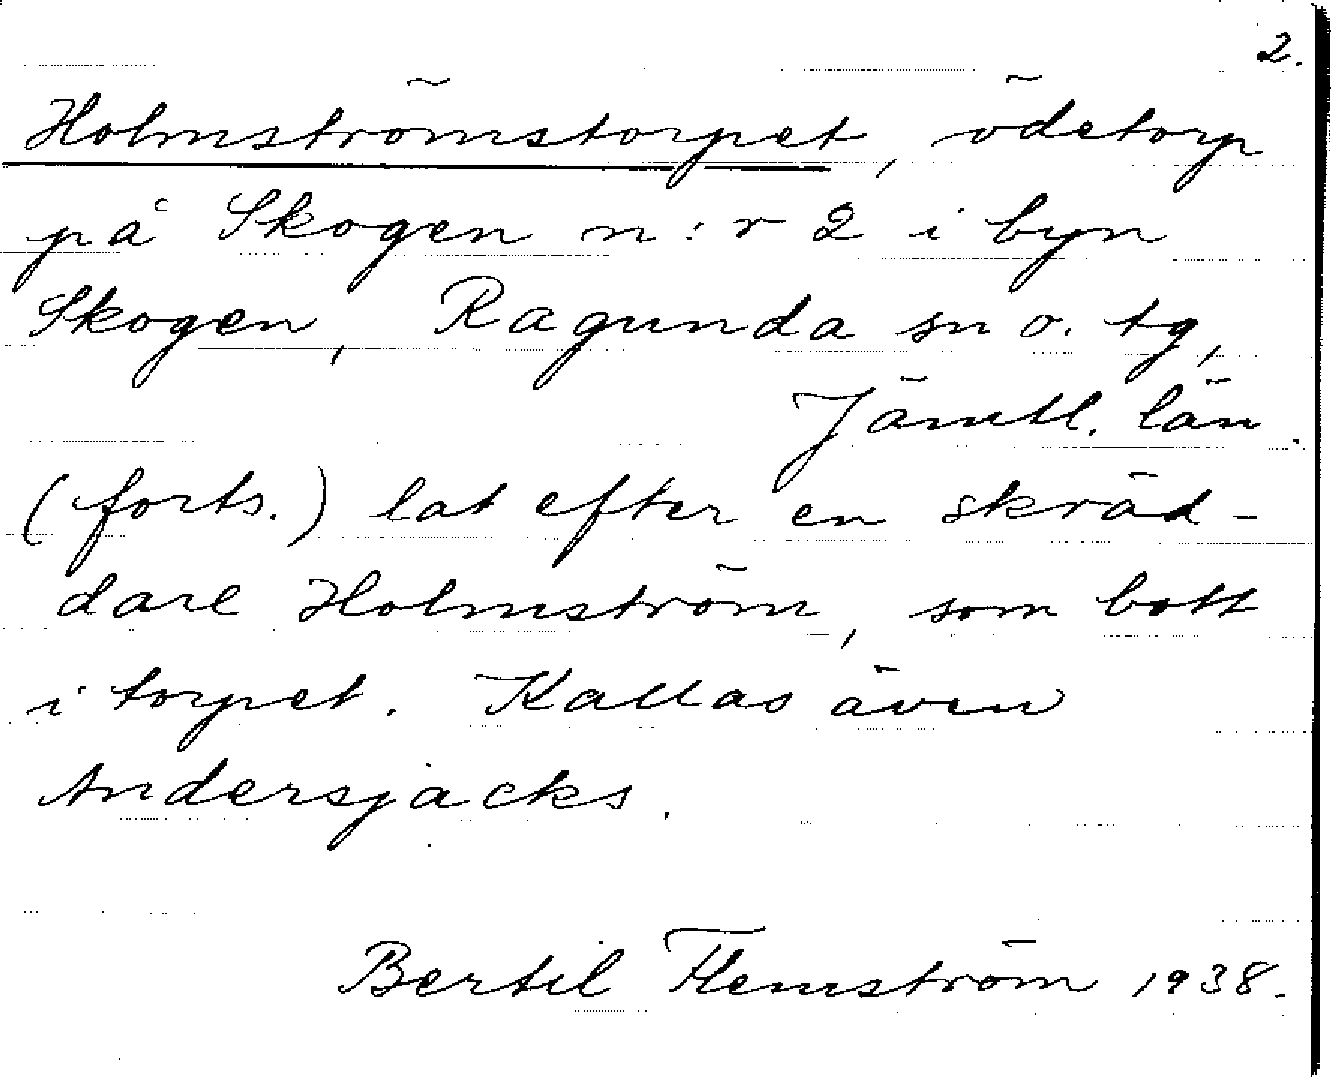 2.
Holmströmstorpet, ödetorp
på Skogen n:r 2 i byn
Skogen, Ragunda sn o. tg,
Jämtl. län.
(forts.) lat efter en skräd-
dare Holmström, som bott
i torpet. Kallas även
Andersjacks.
Bertil Flemström 1938.